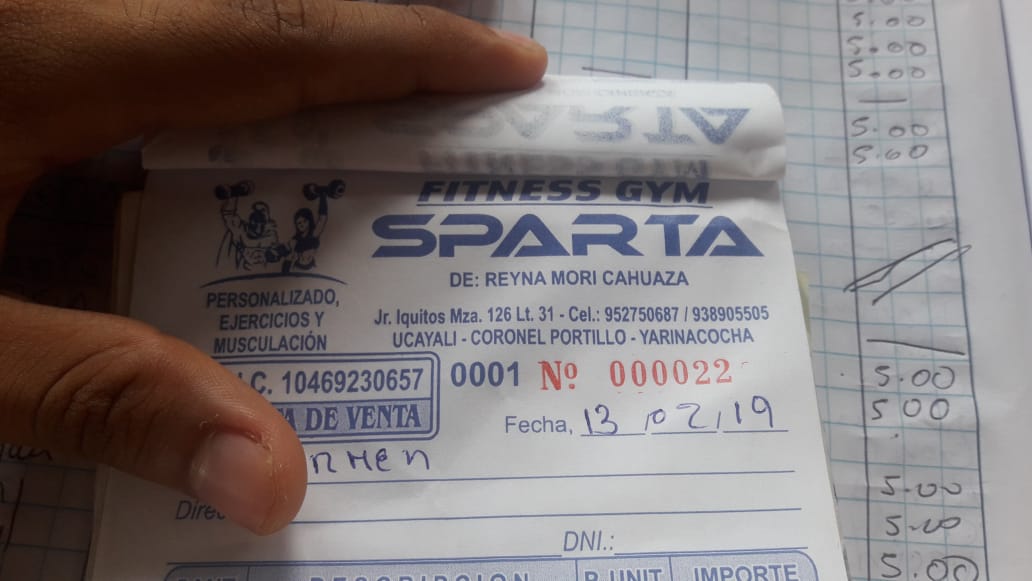 FITNESS GYM
SPARTA
DE: REYNA MORI CAHUAZA
PERSONALIZADO,
EJERCICIOS Y
MUSCULACIÓN
Jr. Iquitos Mza. 126 Lt. 31 - Cel.: 952750687 / 938905505
UCAYALI - CORONEL PORTILLO - YARINACOCHA
.C. 10469230657
DE VENTA
0001 Nº 000022
Fecha, 13 / 02 / 19
DNI.:
DESCRIPCION P. UNIT IMPORTE
5.00
5.00
5.00
5.00
5.00
5.00
5.00
5.00
5.00
5.00